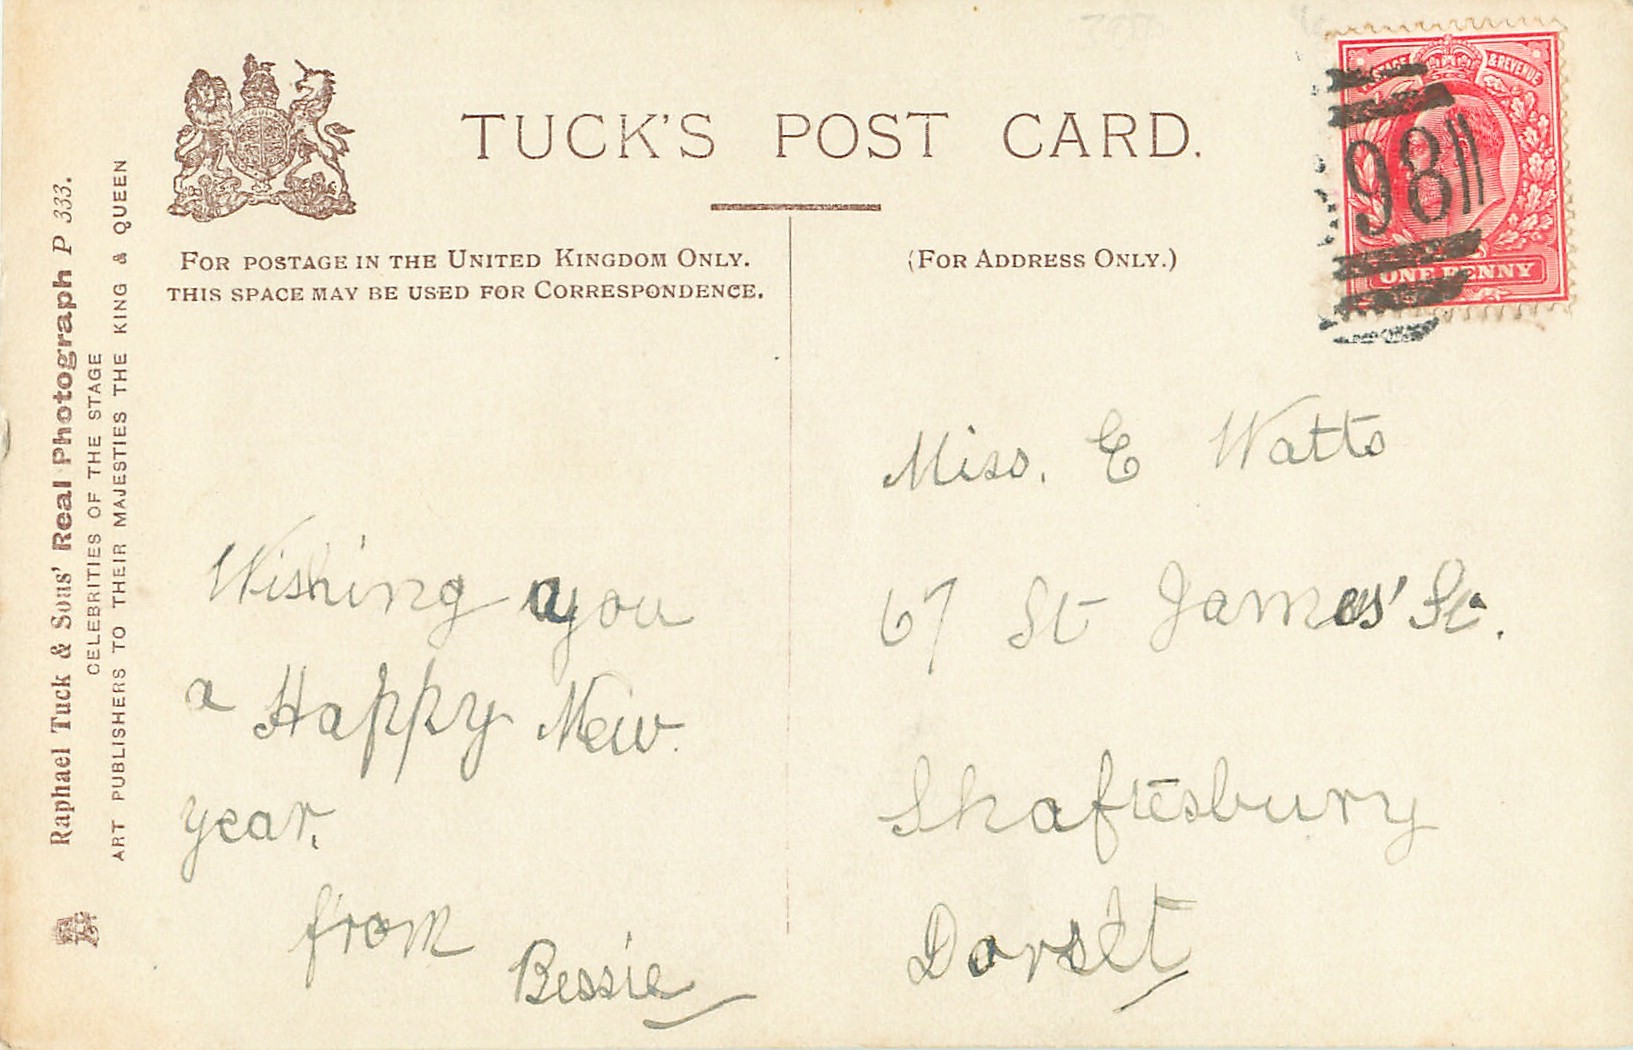 TUCK'S POST CARD.
FOR POSTAGE IN THE UNITED KINGDOM ONLY.
THIS SPACE MAY BE USED FOR CORRESPONDENCE.
(FOR ADDRESS ONLY.)
POSTAGE & REVENUE
98
ONE PENNY
Raphael Tuck & Sons' Real Photograph P 333.
CELEBRITIES OF THE STAGE
ART PUBLISHERS TO THEIR MAJESTIES THE KING & QUEEN
Wishing you
a Happy New
year.
from
Bessie
Miss. E Watts
67 St James' St.
Shaftesbury
Dorset